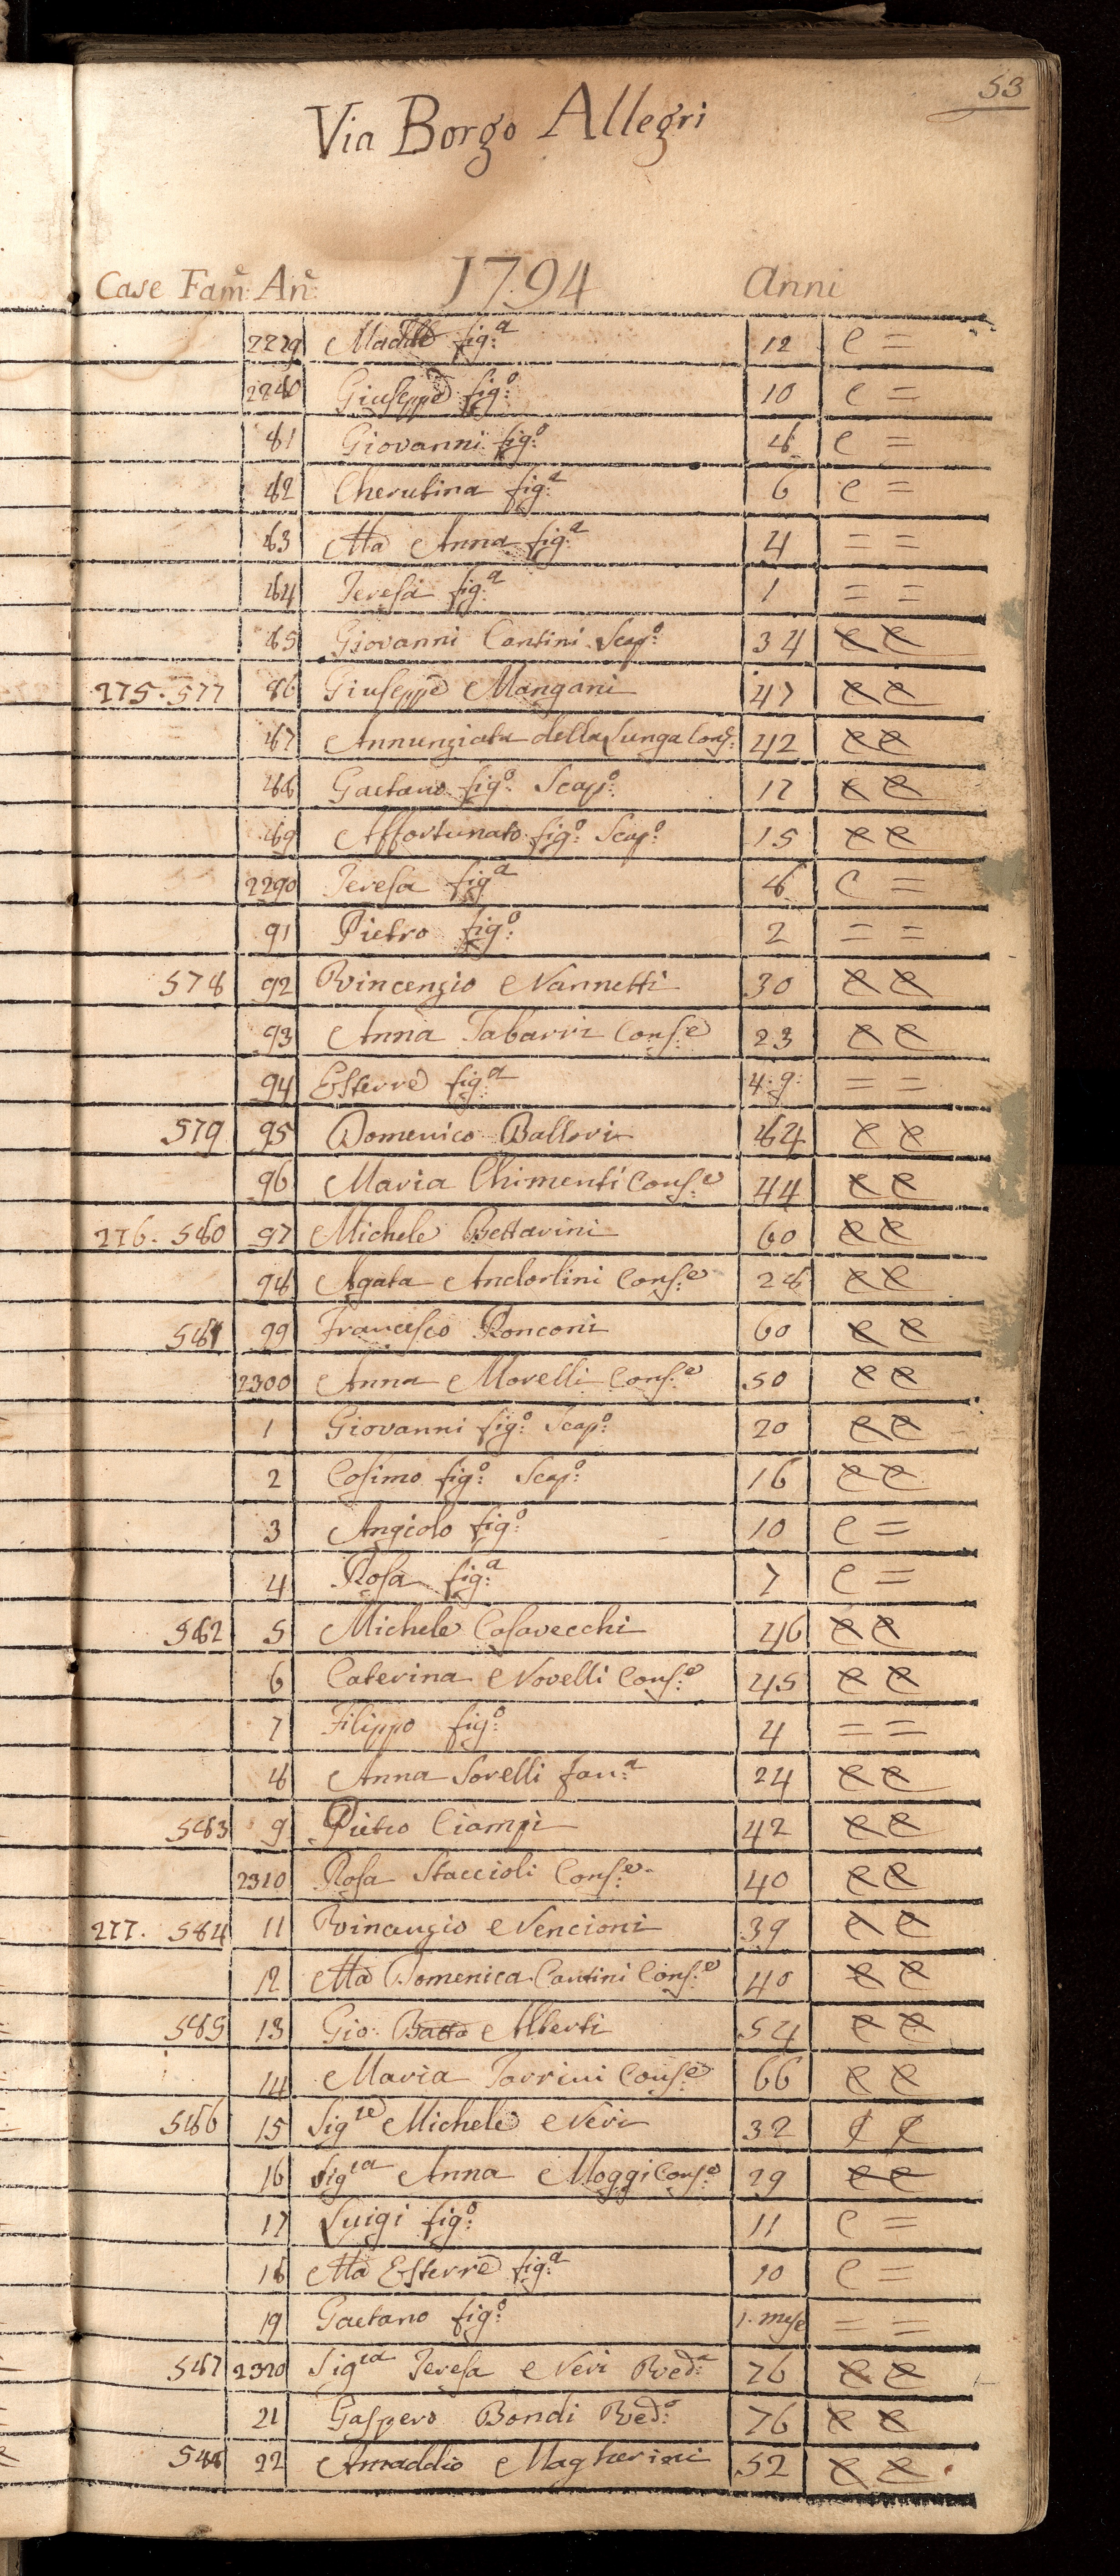 53
Via Borgo Allegri
Case Fam:e An:e 1794 Anni
2279 Madd:a fig:a 12 e =
2280 Giuseppe fig:o 10 e =
81 Giovanni fig:o 8 e =
82 Cherubina fig:a 6 e =
83 Ma Anna fig:a 4 = =
84 Teresa fig:a 1 = =
85 Giovanni Cantini Scap:o 34 e e
275. 577 86 Giuseppe Mangani 47 e e
87 Annunziata della Lunga Cons: 42 e e
88 Gaetano fig:o Scap:o 17 e e
89 Affortunato fig:o Scap:o 15 e e
2290 Teresa fig:a 8 e =
91 Pietro fig:o 2 = =
578 92 Vincenzio Nannetti 30 e e
93 Anna Tabarri Cons:e 23 e e
94 Esterre fig:a 4: g: = =
579 95 Domenico Ballori 64 e e
96 Maria Chimenti Cons:e 44 e e
276. 580 97 Michele Bettarini 60 e e
98 Agata Andorlini Cons:e 28 e e
581 99 Francesco Ronconi 60 e e
2300 Anna Morelli Cons:e 50 e e
1 Giovanni fig:o Scap:o 20 e e
2 Cosimo fig:o Scap:o 16 e e
3 Angiolo fig:o 10 e =
4 Rosa fig:a 7 e =
582 5 Michele Casavecchi 46 e e
6 Caterina Novelli Cons:e 45 e e
7 Filippo fig:o 4 = =
8 Anna Sorelli fan:a 24 e e
583 9 Pietro Ciampi 42 e e
2310 Rosa Staccioli Cons:e 40 e e
277. 584 11 Vincenzio Nencioni 39 e e
12 Ma Domenica Cantini Cons:e 40 e e
585 13 Gio: Batta Alberti 54 e e
14 Maria Torrini Cons:e 66 e e
586 15 Sig:re Michele Neri 32
16 Sig:ra Anna Moggi Cons:e 29 e e
17 Luigi fig:o 11 e =
18 Ma Esterre fig:a 10 e =
19 Gaetano fig:o 1. mese = =
587 2320 Sig:ra Teresa Neri Ved:a 76 e e
21 Gaspero Bondi Ved:o 76 e e
588 22 Amaddio Magherini 52 e e